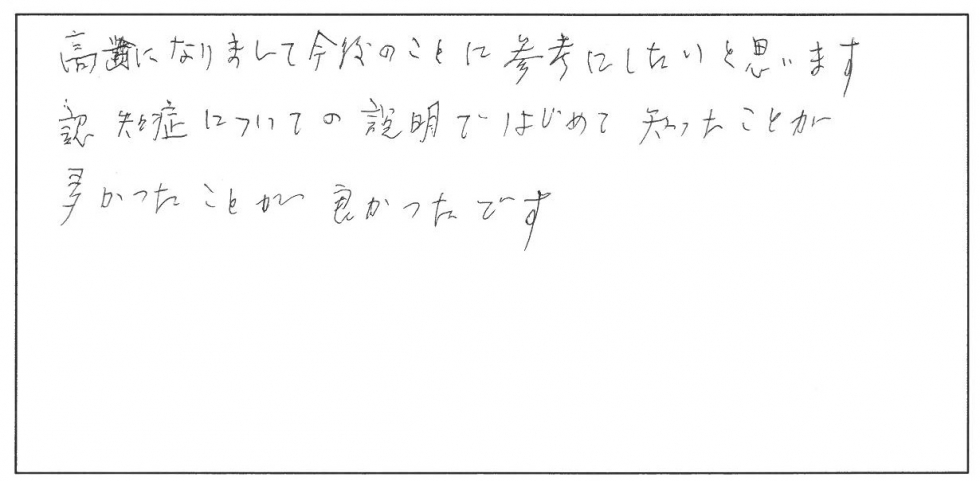 高齢になりまして今後のことに参考にしたいと思います
認知症についての説明ではじめて知ったことが
多かったことが良かったです